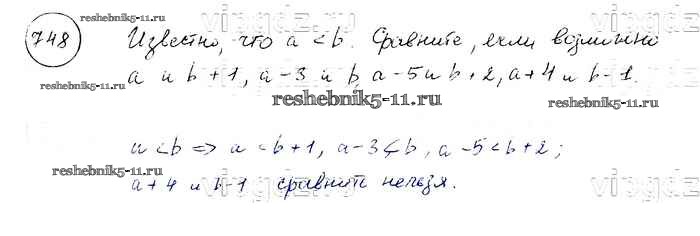 748 Известно, что a < b. Сравните, если возможно
a и b + 1, a - 3 и b, a - 5 и b + 2, a + 4 и b - 1.
a < b => a < b + 1, a - 3 < b, a - 5 < b + 2;
a + 4 и b - 1 сравнить нельзя.
reshebnik5-11.ru
reshebnik5-11.ru
reshebnik5-11.ru
reshebnik5-11.ru
reshebnik5-11.ru
reshebnik5-11.ru